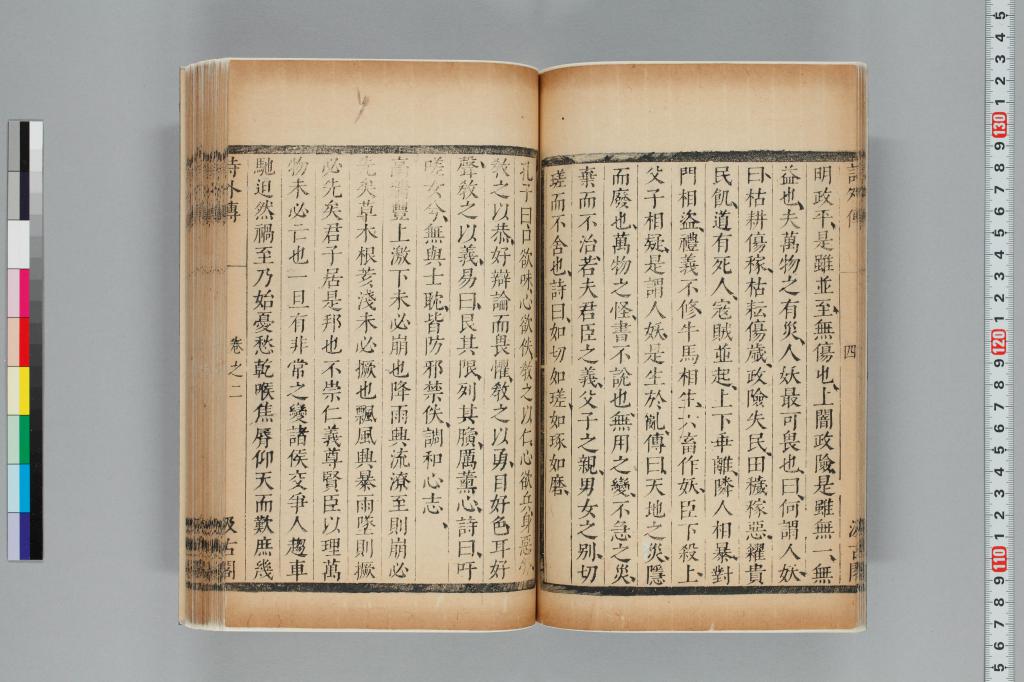 詩外傳
四
汲古閣
明政平是雖並至無傷也上闇政險是雖無一無
益也夫萬物之有災人妖最可畏也曰何謂人妖
曰枯耕傷稼枯耘傷歲政險失民田穢稼惡糴貴
民飢道有死人寇賊並起上下乖離隣人相暴對
門相盜禮義不修牛馬相生六畜作妖臣下殺上
父子相疑是謂人妖是生於亂傳曰天地之災隱
而廢也萬物之怪書不說也無用之變不急之災
棄而不治若夫君臣之義父子之親男女之别切
瑳而不舍也詩曰如切如瑳如琢如磨
孔子曰口欲味心欲佚教之以仁心欲兵身惡勞
教之以恭好辯論而畏懼教之以勇目好色耳好
聲教之以義易曰艮其限列其䐣厲薰心詩曰吁
嗟女兮無與士耽皆防邪禁佚調和心志
高牆豐上激下未必崩也降雨興流潦至則崩必
先矣草木根荄淺未必撅也飄風興暴雨墜則撅
必先矣君子居是邦也不崇仁義尊賢臣以理萬
物未必亡也一旦有非常之變諸侯交爭人趨車
馳迫然禍至乃始憂愁乾喉焦脣仰天而歎庶幾
詩外傳
卷之二
汲古閣